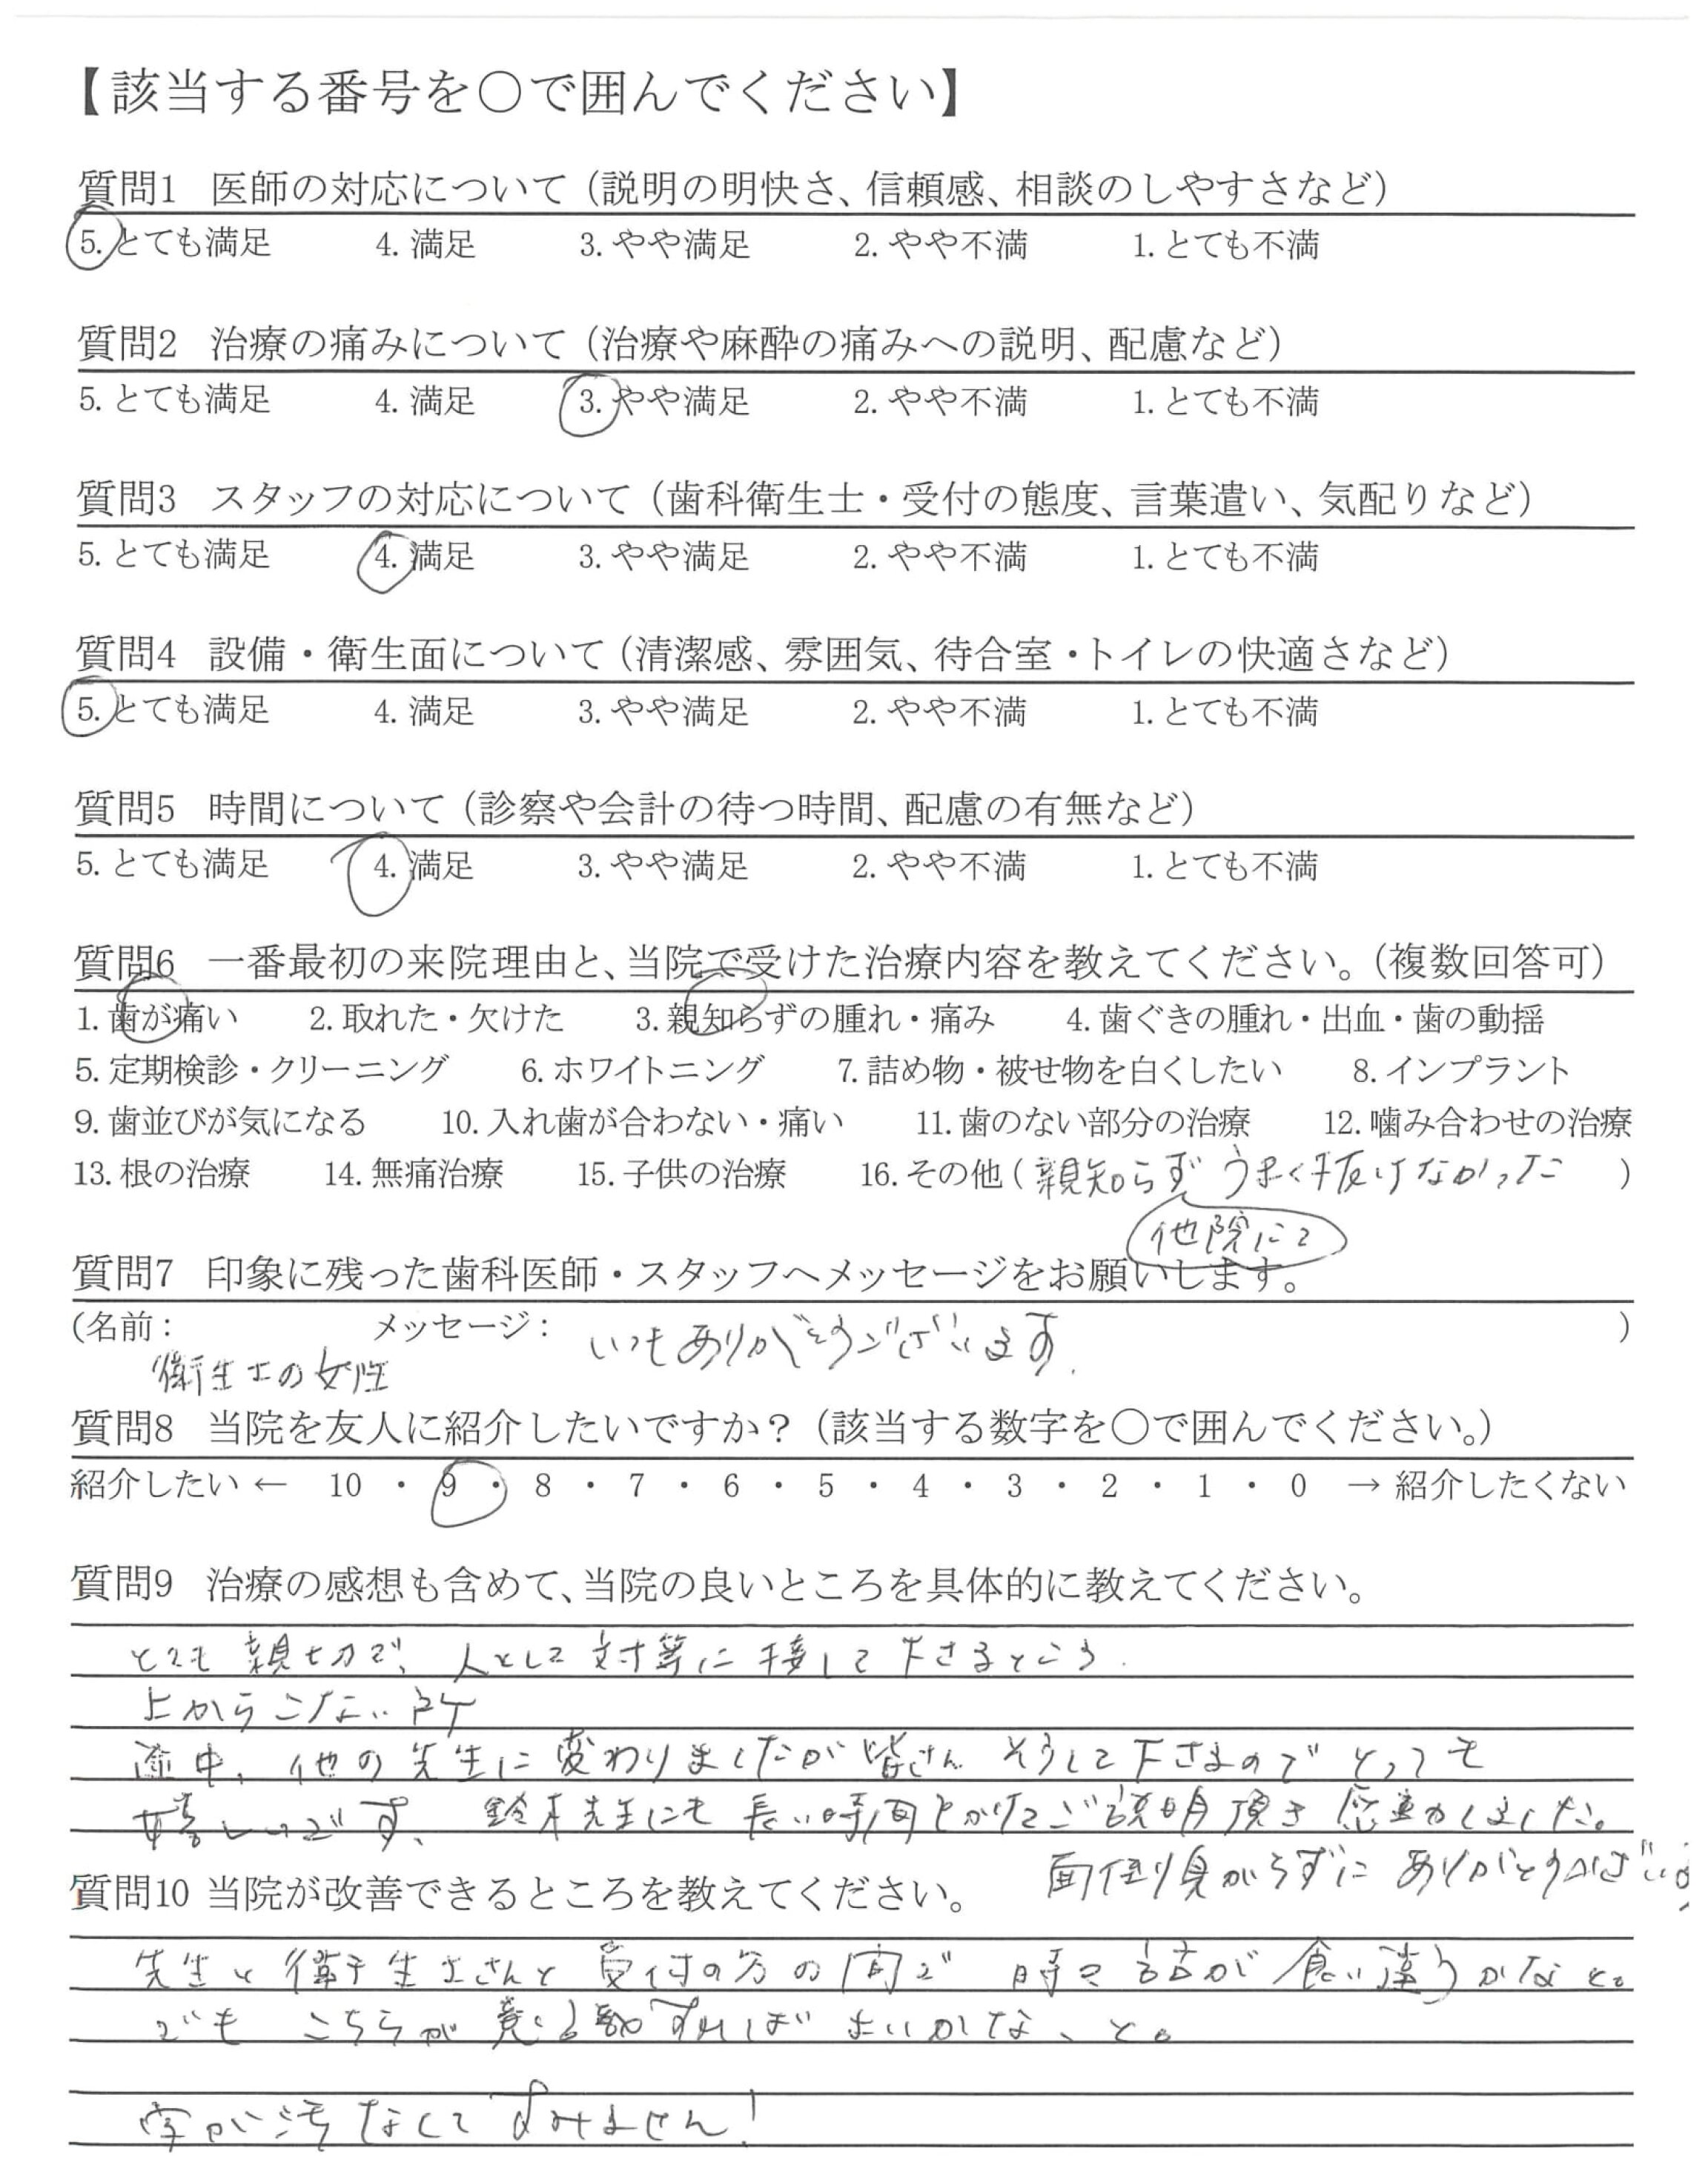 【該当する番号を○で囲んでください】
質問1 医師の対応について（説明の明快さ、信頼感、相談のしやすさなど）
5. とても満足 4. 満足 3. やや満足 2. やや不満 1. とても不満
質問2 治療の痛みについて（治療や麻酔の痛みへの説明、配慮など）
5. とても満足 4. 満足 3. やや満足 2. やや不満 1. とても不満
質問3 スタッフの対応について（歯科衛生士・受付の態度、言葉遣い、気配りなど）
5. とても満足 4. 満足 3. やや満足 2. やや不満 1. とても不満
質問4 設備・衛生面について（清潔感、雰囲気、待合室・トイレの快適さなど）
5. とても満足 4. 満足 3. やや満足 2. やや不満 1. とても不満
質問5 時間について（診察や会計の待つ時間、配慮の有無など）
5. とても満足 4. 満足 3. やや満足 2. やや不満 1. とても不満
質問6 一番最初の来院理由と、当院で受けた治療内容を教えてください。（複数回答可）
1. 歯が痛い 2. 取れた・欠けた 3. 親知らずの腫れ・痛み 4. 歯ぐきの腫れ・出血・歯の動揺
5. 定期検診・クリーニング 6. ホワイトニング 7. 詰め物・被せ物を白くしたい 8. インプラント
9. 歯並びが気になる 10. 入れ歯が合わない・痛い 11. 歯のない部分の治療 12. 噛み合わせの治療
13. 根の治療 14. 無痛治療 15. 子供の治療 16. その他（親知らず うまく抜けなかった ）
他院にて
質問7 印象に残った歯科医師・スタッフへメッセージをお願いします。
（名前： メッセージ： いつもありがとうございます. ）
衛生士の女性
質問8 当院を友人に紹介したいですか？（該当する数字を○で囲んでください。）
紹介したい ← 10 ・ 9 ・ 8 ・ 7 ・ 6 ・ 5 ・ 4 ・ 3 ・ 2 ・ 1 ・ 0 → 紹介したくない
質問9 治療の感想も含めて、当院の良いところを具体的に教えてください。
とても親切で、人として対等に接して下さるところ.
上からこない所
途中、他の先生に変わりましたが皆さん そうして下さるので とっても
嬉しいです、鈴木先生にも 長い時間をかけてご説明頂き 感動しました。
面倒臭がらずに ありがとうござい
質問10 当院が改善できるところを教えてください。
先生と衛生士さんと受付の方の間で 時々 話が食い違うかなと。
でも こちらが 意識すれば よいかな、と。
字が汚なくてすみません！